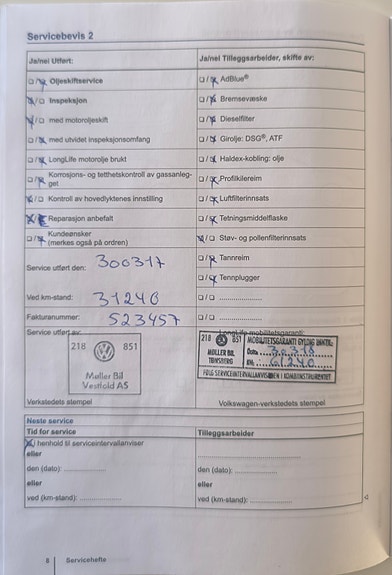 Servicebevis 2
Ja/nei Utført:
Ja/nei Tilleggsarbeider, skifte av:
Oljeskiftservice
AdBlue®
Inspeksjon
Bremsevæske
med motoroljeskift
Dieselfilter
med utvidet inspeksjonsomfang
Girolje: DSG®, ATF
LongLife motorolje brukt
Haldex-kobling: olje
Korrosjons- og tetthetskontroll av gassanleg-
get
Profilkilereim
Kontroll av hovedlyktenes innstilling
Luftfilterinnsats
Reparasjon anbefalt
Tetningsmiddelflaske
Kundeønsker
(merkes også på ordren)
Støv- og pollenfilterinnsats
Service utført den: 300317
Tannreim
Tennplugger
Ved km-stand: 31240
Fakturanummer: 523457
Service utført av:
LongLife mobilitetsgaranti:
218 851
Møller Bil
Vestfold AS
218 851
MØLLER BIL
TØNSBERG
MOBILITETSGARANTI GYLDIG INNTIL:
Dato 30318
KM. 61240
FØLG SERVICEINTERVALLANVISNINGEN I KOMBIINSTRUMENTET
Verkstedets stempel
Volkswagen-verkstedets stempel
Neste service
Tid for service
Tilleggsarbeider
I henhold til serviceintervallanviser
eller
den (dato):
den (dato):
eller
eller
ved (km-stand):
ved (km-stand):
8 Servicehefte